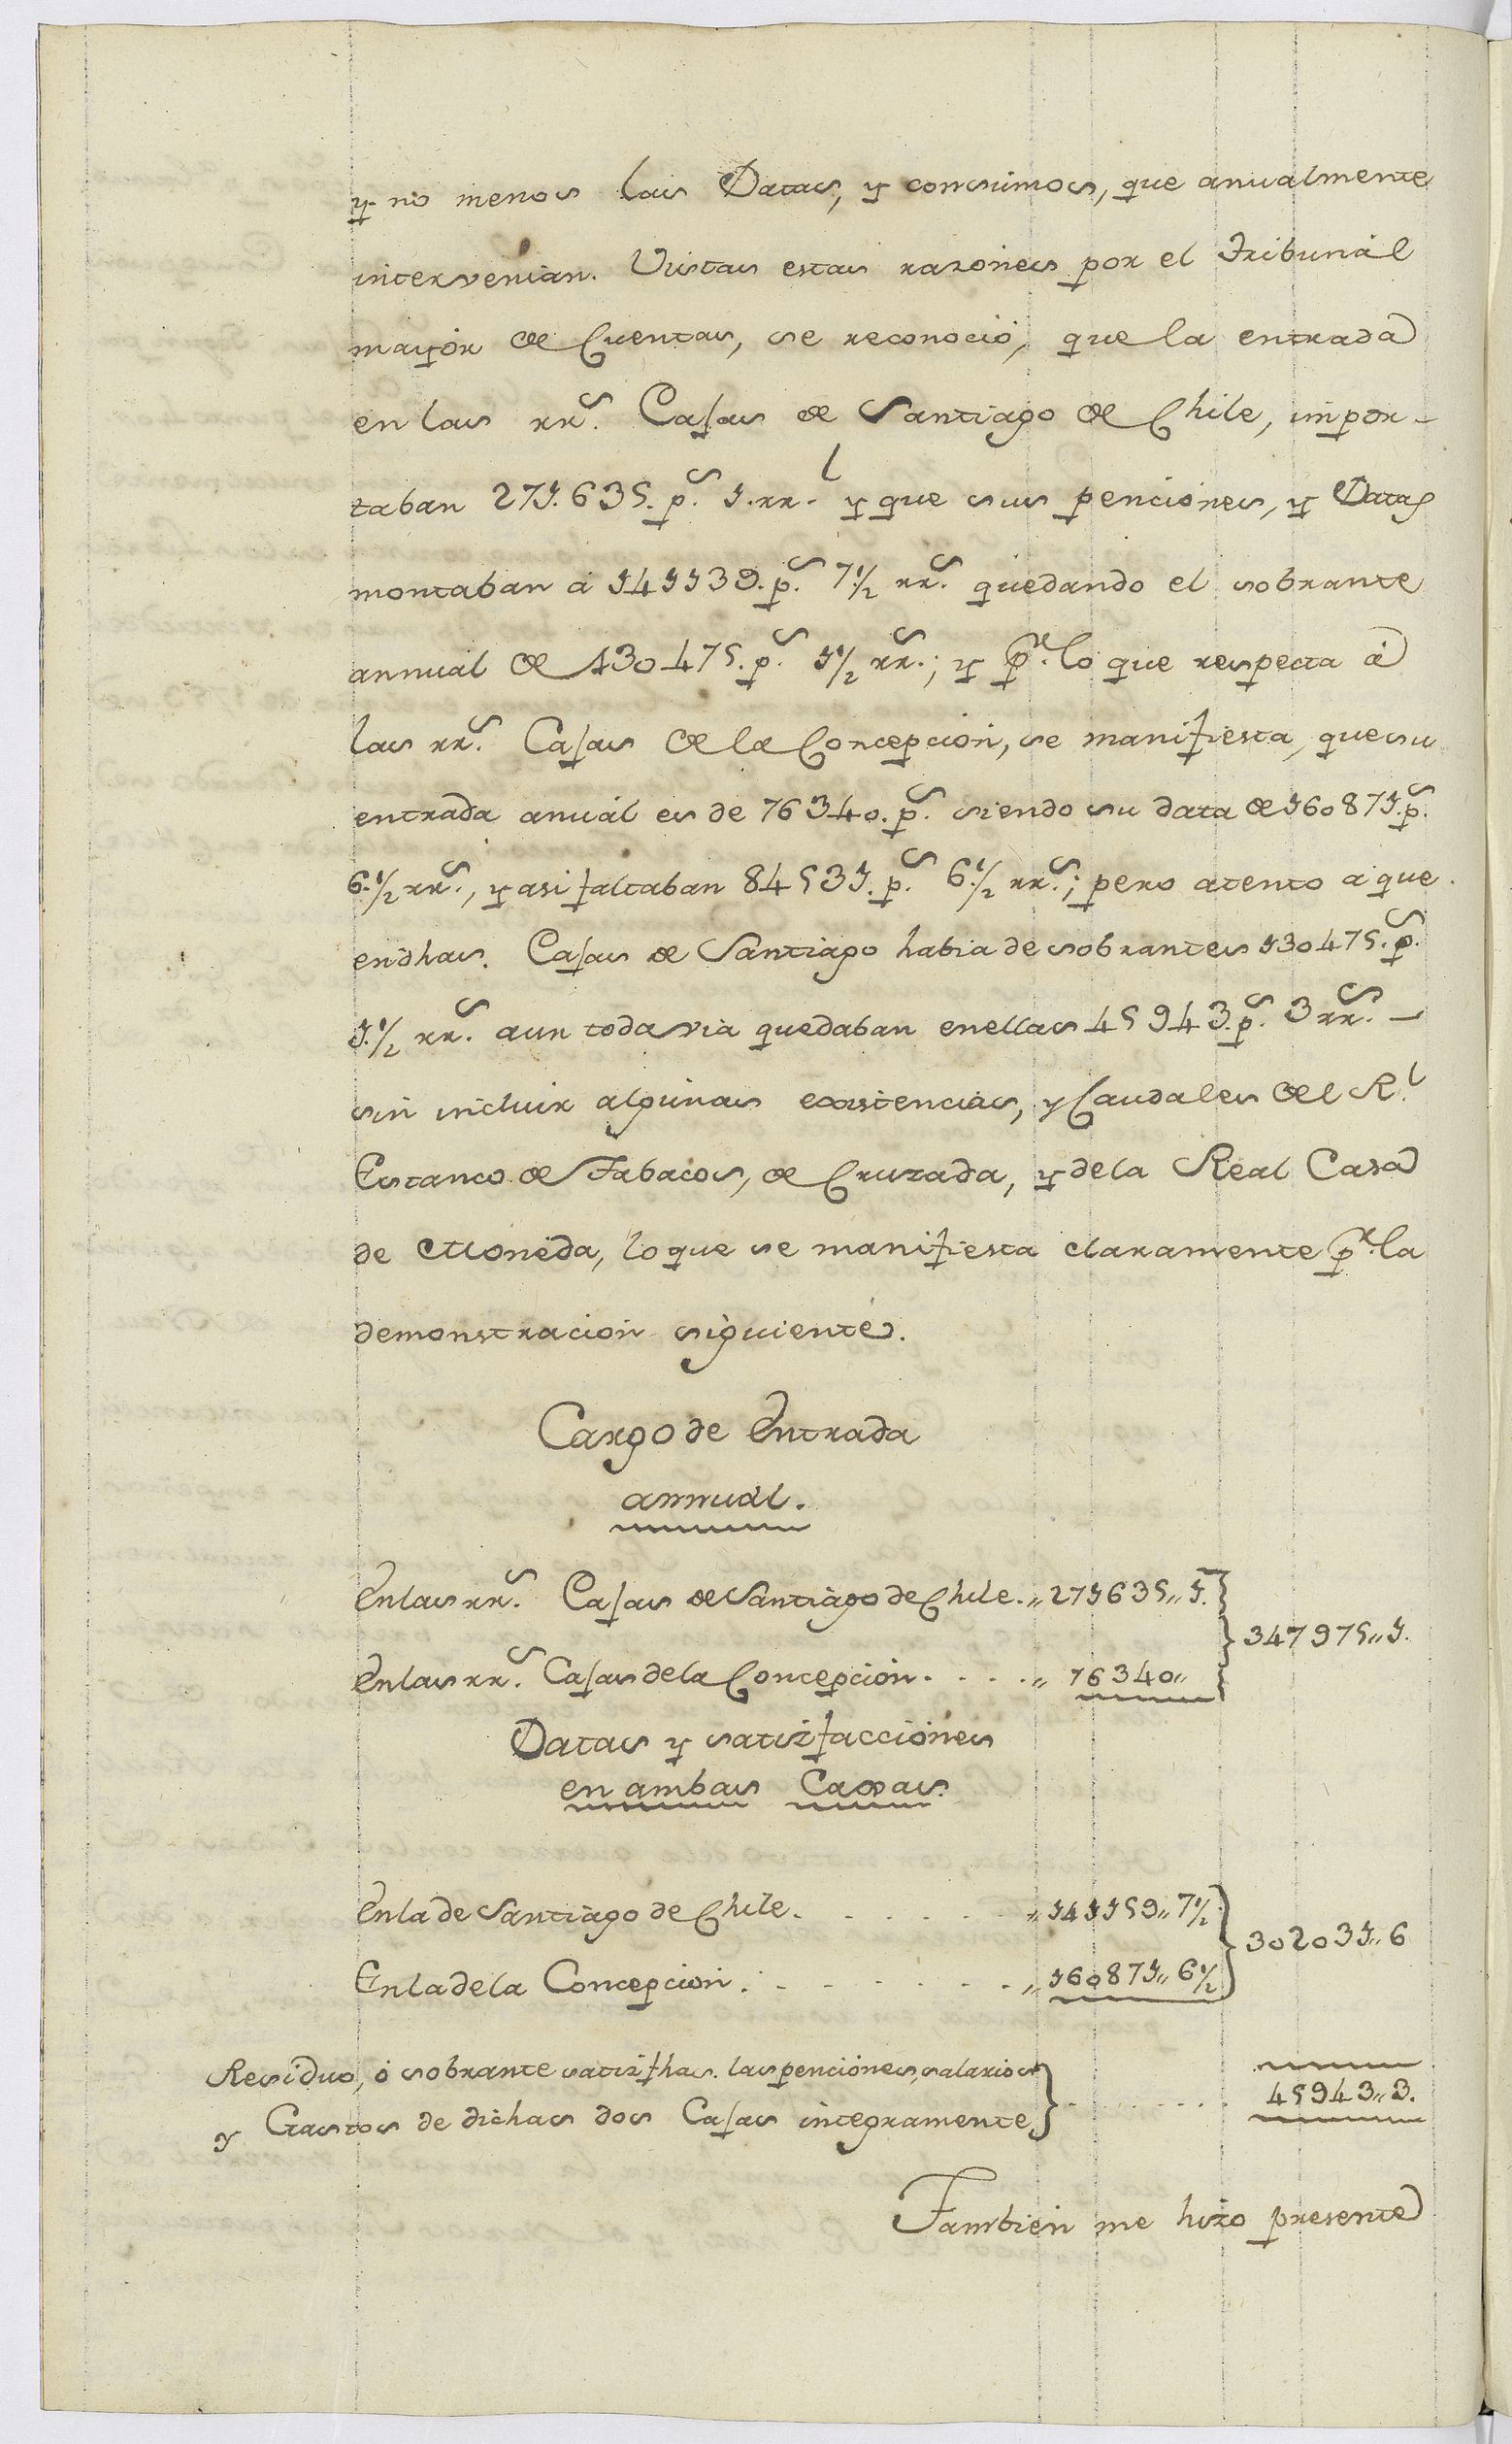 y no menos las Datas, y consumos, que anualmente
intervenian. Vistas estas razones por el Tribunal
mayor de Cuentas, se reconoció, que la entrada
en las rr.s Cajas de Santiago de Chile, inpor-
taban 271.635. p.s 1. rr.l y que sus penciones, y Datas
montaban á 141139. p.s 7.½ rr.s quedando el sobrante
annual de 130475. p.s 1½ rr.s; y p.r lo que respecta á
las rr.s Cajas de la Concepcion, se manifiesta, que su
entrada anual es de 76340. p.s siendo su data de 160871. p.s
6.½ rr.s, y asi faltaban 84531. p.s 6.½ rr.s; pero atento a que
en dhas. Cajas de Santiago habia de sobrantes 130475. p.s
1.½ rr.s aun toda via quedaban en ellas 45943. p.s 3 rr.s —
sin incluir algunas existencias, y Caudales del R.l
Estanco de Tabacos, de Cruzada, y de la Real Casa
de Moneda, lo que se manifiesta claramente p.r la
demonstracion siguiente.
Cargo de Entrada
annual.
En las rr.s Cajas de Santiago de Chile. „ 271635„ 1. } 347975„ 1.
En las rr.s Cajas de la Concepcion. . . . „ 76340„
Datas y satisfacciones
en ambas Caxas.
En la de Santiago de Chile. . . . . . . „ 141159„ 7½ } 302031„ 6
En la de la Concepcion. . . . . . . „ 160871„ 6½
Residuo, ó sobrante satisfhas. las penciones, salarios
y Gastos de dichas dos Cajas integramente } . . . . . . . 45943„ 3.
Tambien me hizo presente